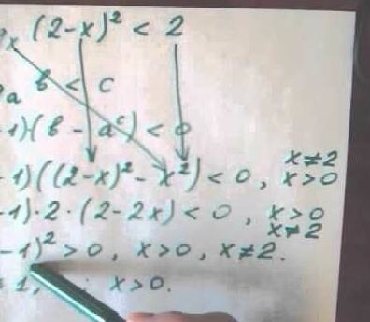 x (2-x)² < 2
a b < c
-1)(b - aᶜ) < 0
-1)((2-x)² - x²) < 0, x≠2 x>0
-1)·2·(2-2x) < 0, x>0 x≠2
-1)² > 0, x>0, x≠2.
1, x>0.